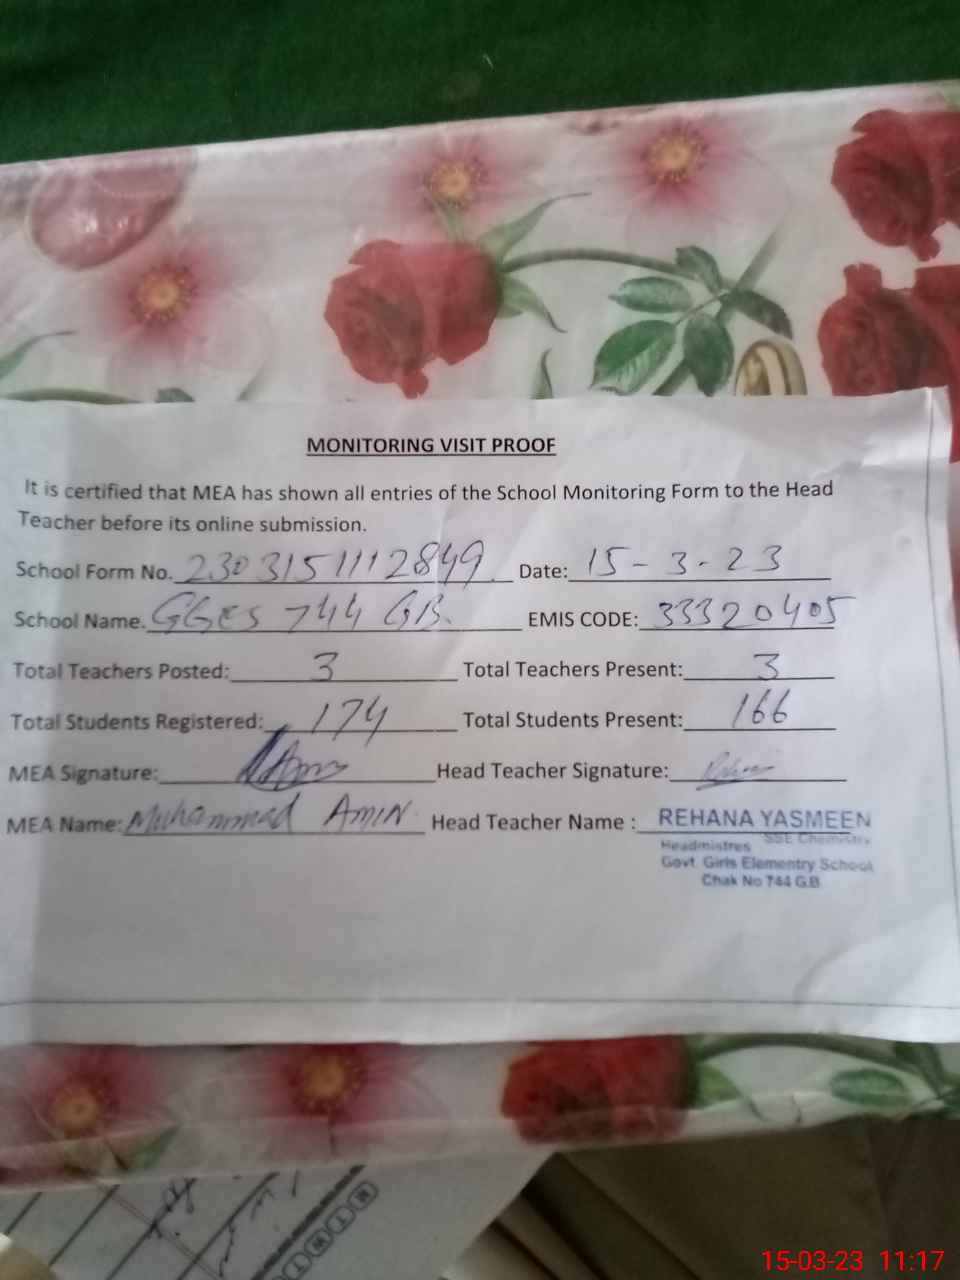 MONITORING VISIT PROOF
It is certified that MEA has shown all entries of the School Monitoring Form to the Head
Teacher before its online submission.
School Form No. 2303151112849 Date: 15-3-23
School Name. GGES 744 GB. EMIS CODE: 33320405
Total Teachers Posted: 3 Total Teachers Present: 3
Total Students Registered: 174 Total Students Present: 166
MEA Signature: Head Teacher Signature:
MEA Name: Muhammad AMIN. Head Teacher Name : REHANA YASMEEN
SSE Chemistry
Headmistres
Govt. Girls Elementry School
Chak No 744 G.B
15-03-23 11:17